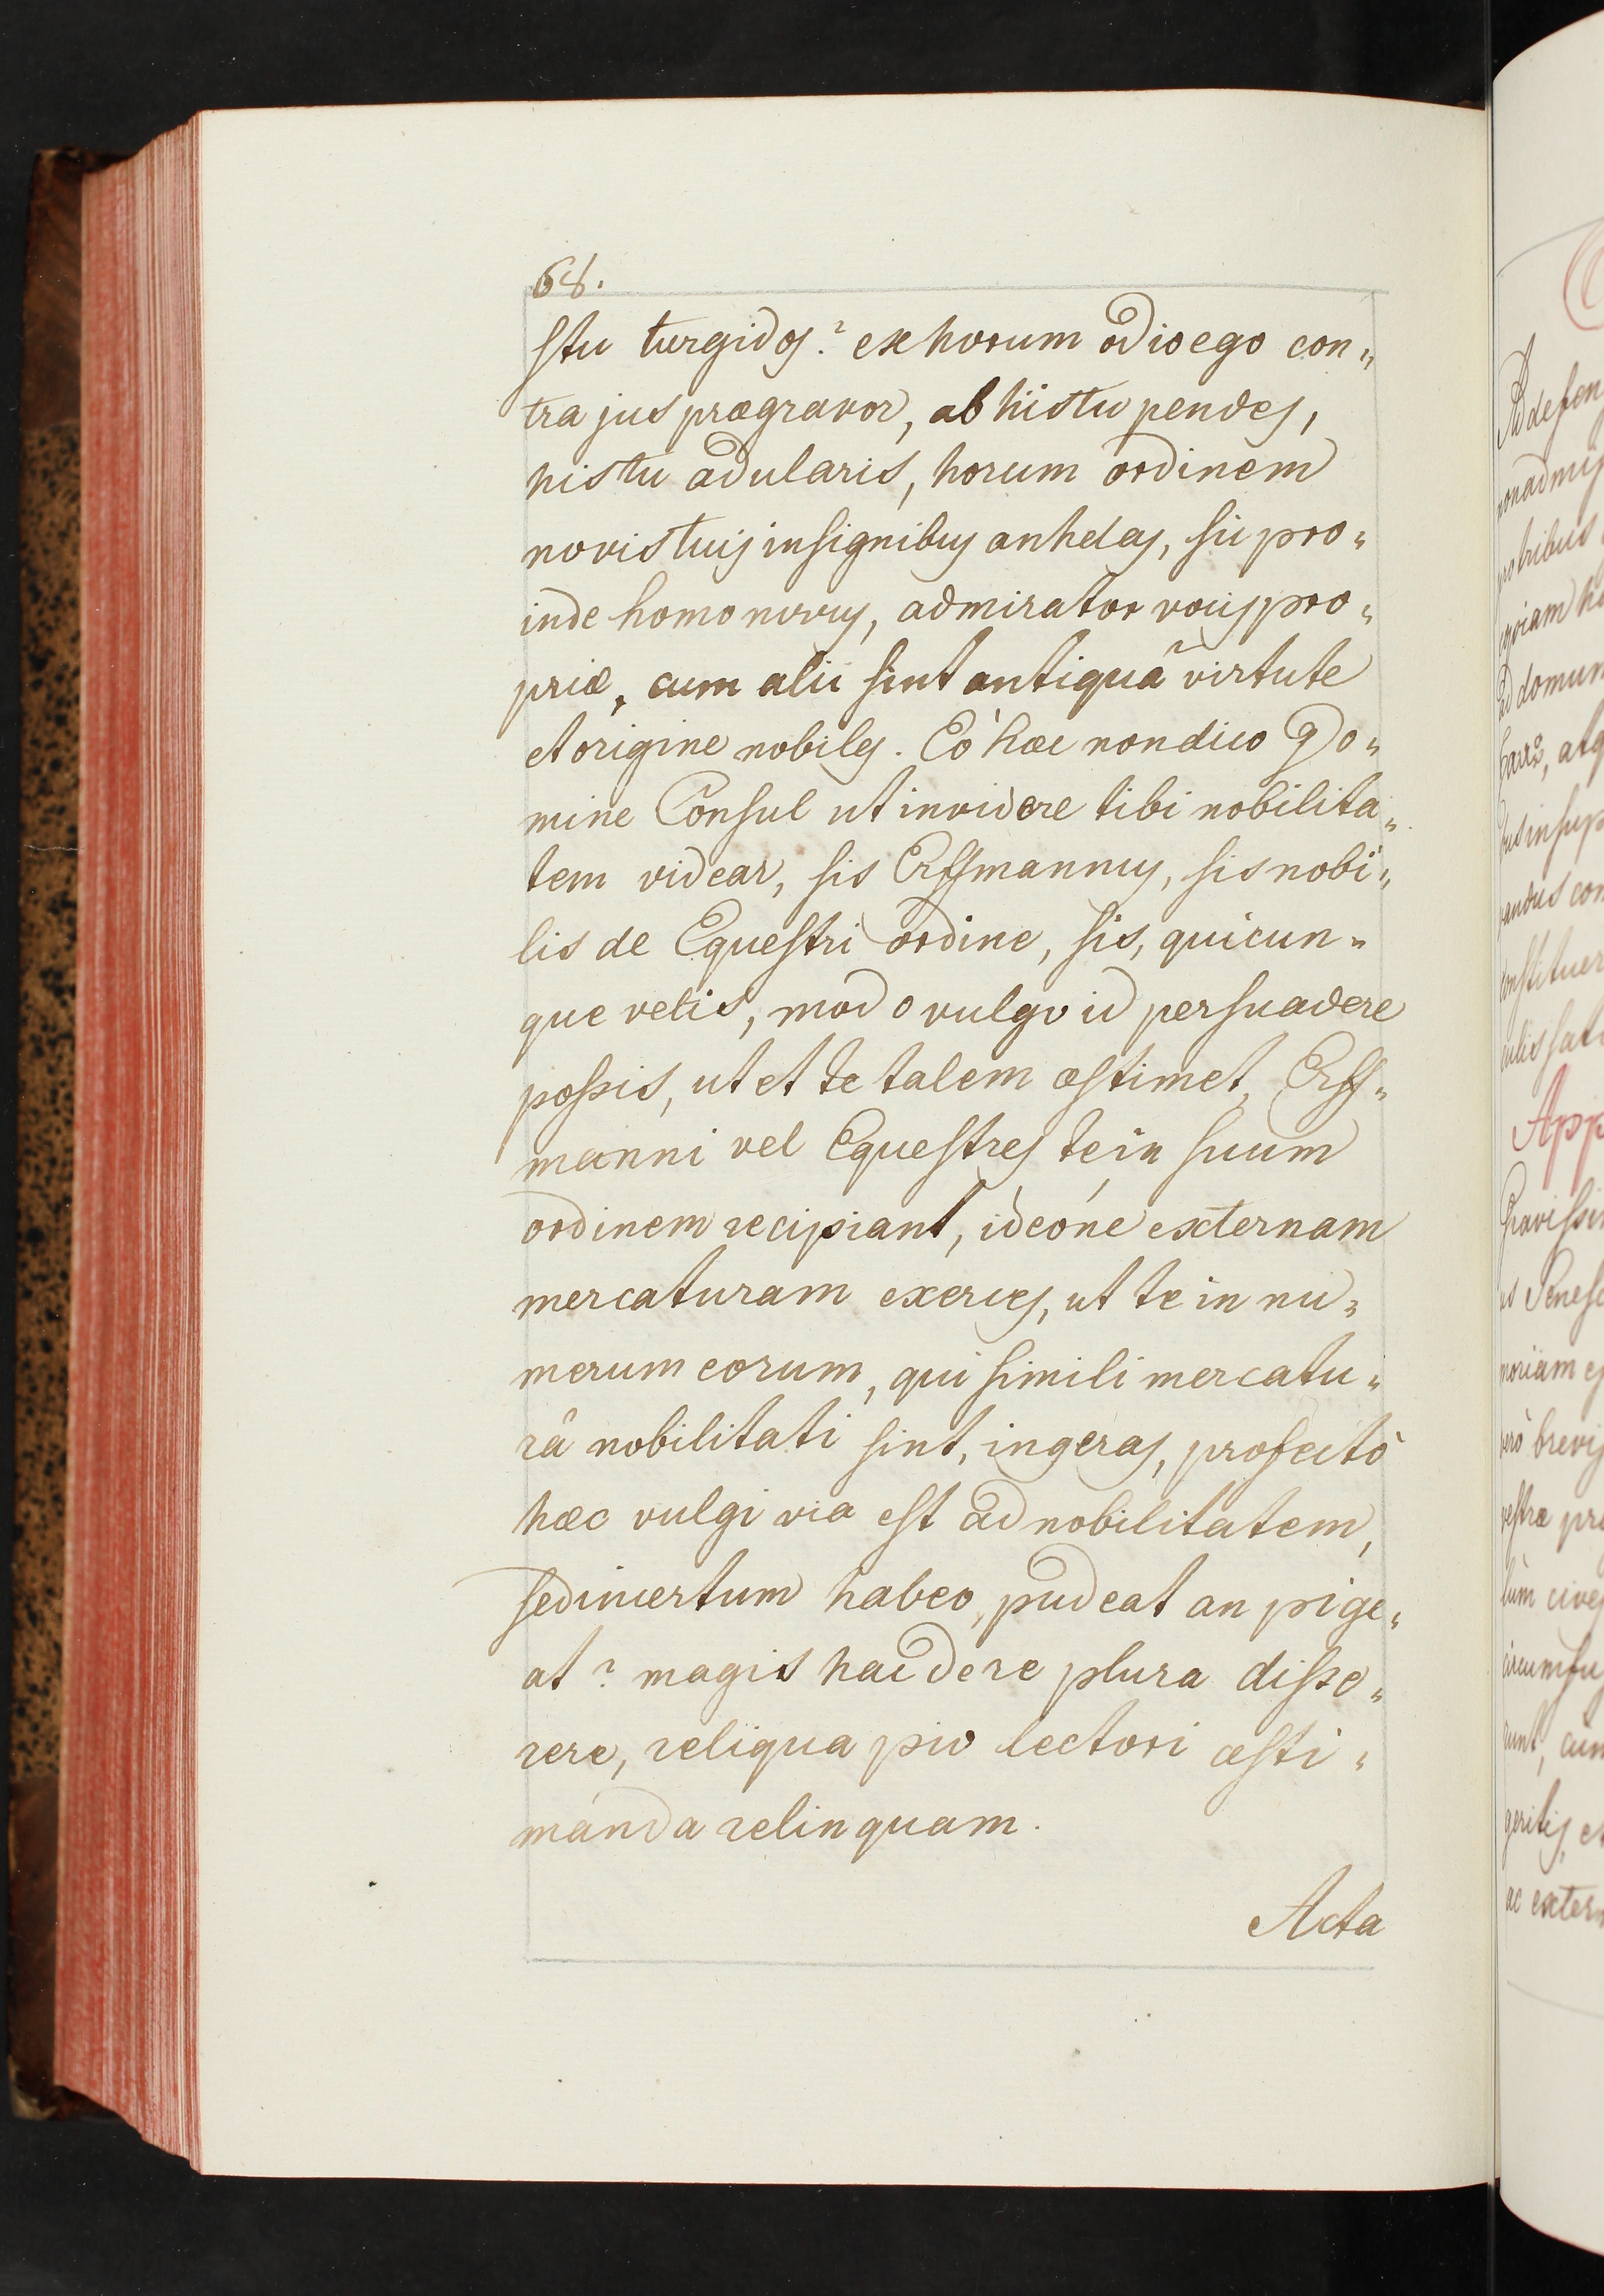 68.
stu turgidos? ex horum odio ego con„
tra jus prægravor, ab his tu pendes,
his tu adularis, horum ordinem
novis tuis insignibus anhelas, sis pro„
inde homo novus, admirator vocis pro„
priæ, cum alii sint antiquâ virtute
et origine nobiles. Eò hæc non dico Do„
mine Consul ut invidere tibi nobilita„
tem videar, sis Erffmannus, sis nobi„
lis de Equestri ordine, sis, quicun„
que velis, modo vulgo id persuadere
possis, ut et te talem æstimet, Erff„
manni vel Equestres te in suum
ordinem recipiant, ideóne externam
mercaturam exerces, ut te in nu„
merum eorum, qui simili mercatu„
râ nobilitati sint, ingeras, profectò
hæc vulgi via est ad nobilitatem,
sed incertum habeo, pudeat an pige„
at? magis hac de re plura disse„
rere, reliqua pio lectori æsti„
manda relinquam.
Acta
Ad defen
non admis
ad domum
App
ac extern